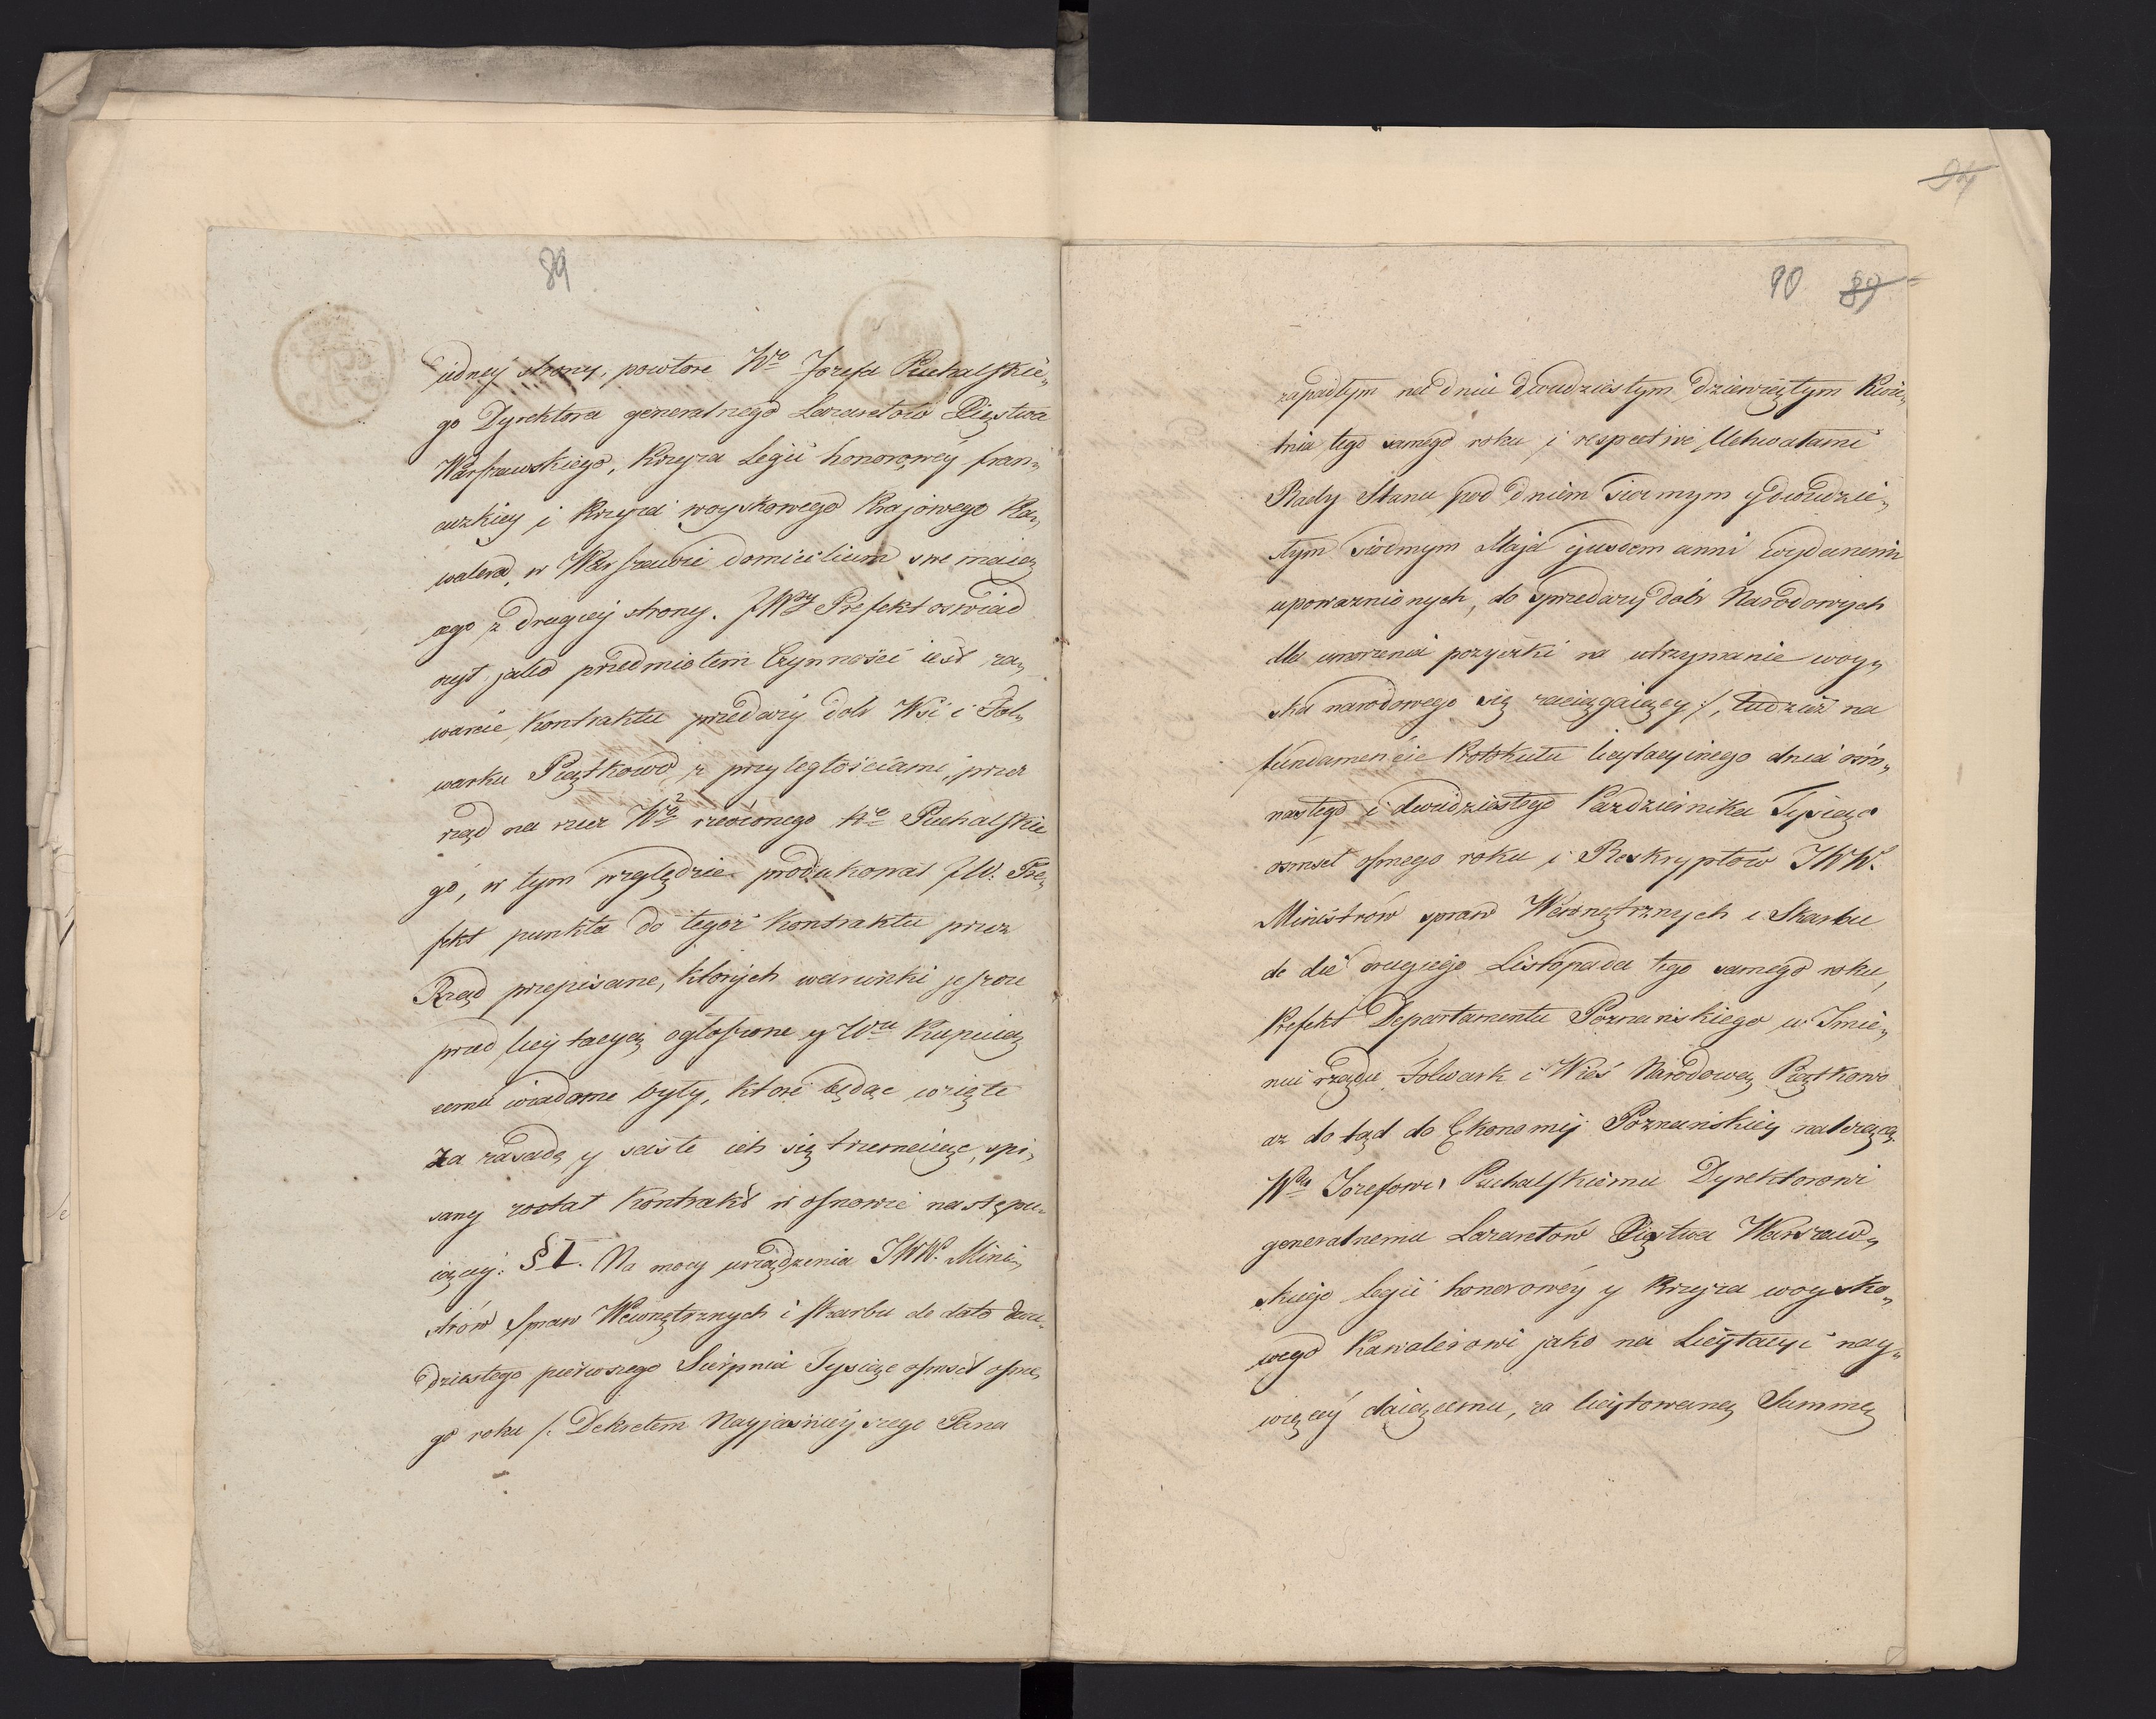 89
iedney strony, powtore Wgo Jozefa Puchalskie„
go Dyrektora generalnego Lazaretów Xięstwa
Warszawskiego, Krzyża Legii honorowey fran„
cuzkiey i Krzyża woyskowego Krajowego Ka„
walera, w Warszawie domicilium swe maią„
cego z drugiey strony. JWny Prefekt oswiad
czył, jako przedmiotem Czynności iest za„
warcie Kontraktu przedaży dobr Wsi i Fol„
warku Piątkowo z przyległościami, przez
rząd na rzecz Wgo rzeczonego Wgo Puchalskie
go, w tym względzie produkował JW. Pre„
fekt punkta do tegoż Kontraktu przez
Rząd przepisane, których warunki jeszcze
przed licytacyą ogłoszone y Wmu Kupuią„
cemu wiadome były, które będąc wzięte
za zasadę y sciśle ich się trzymaiąc, spi„
sany został Kontrakt w osnowie następu„
iącey: § I. Na mocy urządzenia JWW. Mini„
strów Spraw Wewnętrznych i Skarbu de dato dwu„
dziestego pierwszego Sierpnia Tysiąc osmset osme„
go roku /: Dekretem Nayjaśnieyszego Pana
90 89
zapadłym na dniu dwudziestym dziewiętym Kwie„
tnia tego samego roku i respective Uchwałami
Rady Stanu pod dniem siodmym y dwudzie„
stym siodmym Maja ejusdem anni wydanemi
upoważnionych, do sprzedaży dobr Narodowych
dla umorzenia pożyczki na utrzymanie woy„
ska narodowego się zaciągaiącey :/, tudzież na
fundamencie Protokułu licytacyinego dnia osm„
nastego i dwudziestego Pazdziernika Tysiąc
osmset osmego roku i Reskryptów JWW.
Ministrów spraw Wewnętrznych i Skarbu
de die drugiego Listopada tego samego roku,
Prefekt Departamentu Poznańskiego w Imie„
niu rządu Folwark i Wieś Narodową Piątkowo
aż do tąd do Ekonomij Poznańskiey należącą,
Wmu Jozefowi Puchalskiemu Dyrektorowi
generalnemu Lazaretów Xięstwa Warszaw„
skiego legii honorowéy y Krzyża woysko„
wego Kawalerowi jako na Licytacyi nay„
więcéy daiącemu, za licytowaną Summę